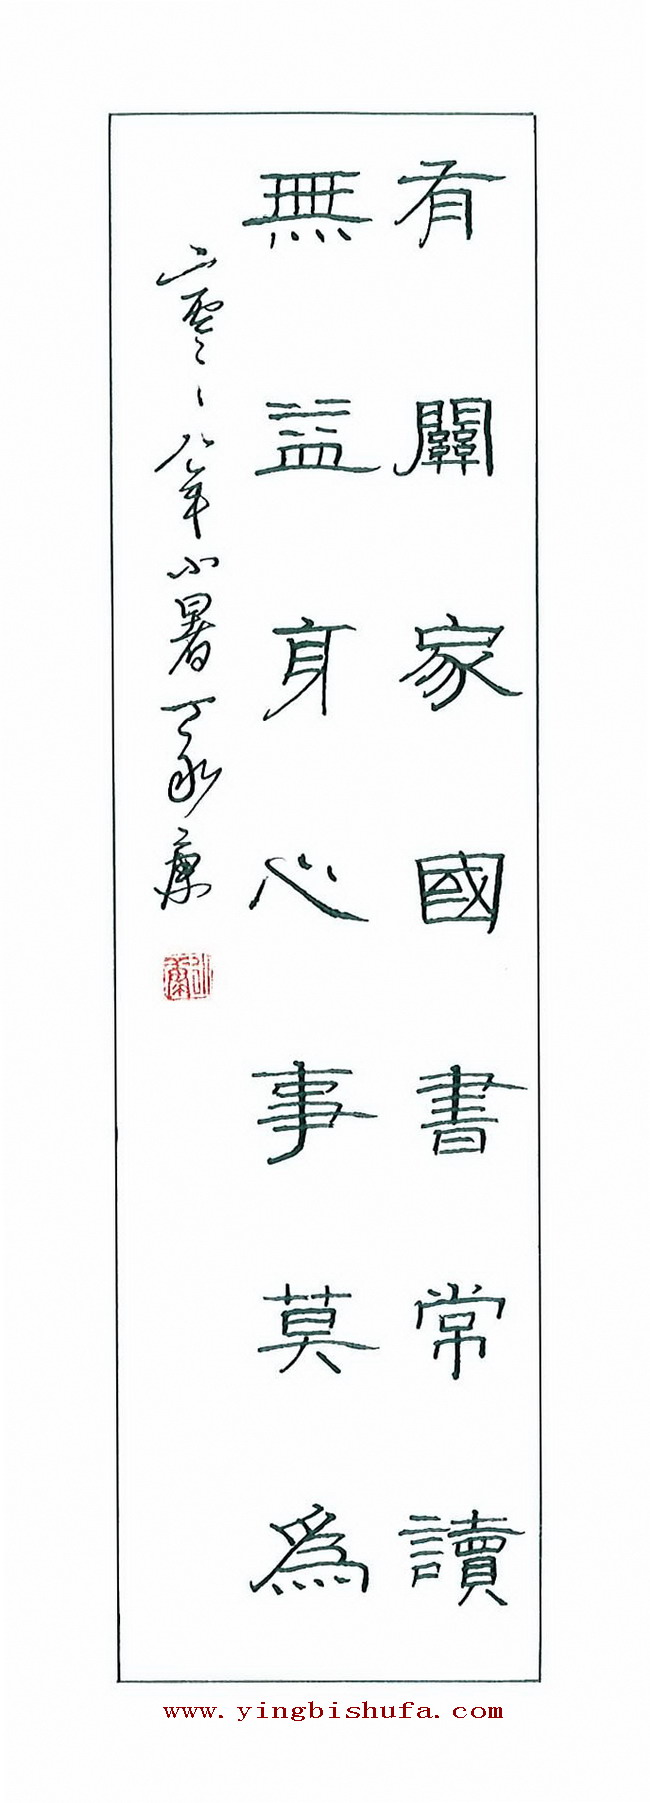 有關家國書常讀
無益身心事莫為
二零零八年小暑丁永康
www.yingbishufa.com